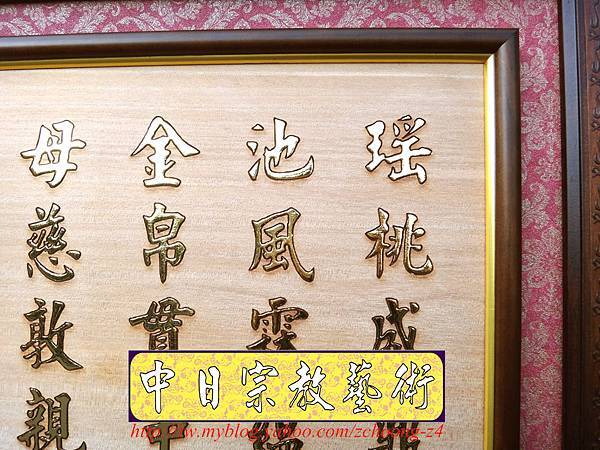 瑶桃成
池風
金帛貫
母慈敦親
中日宗教藝術
http://tw.myblog.yahoo.com/zchoong-z4